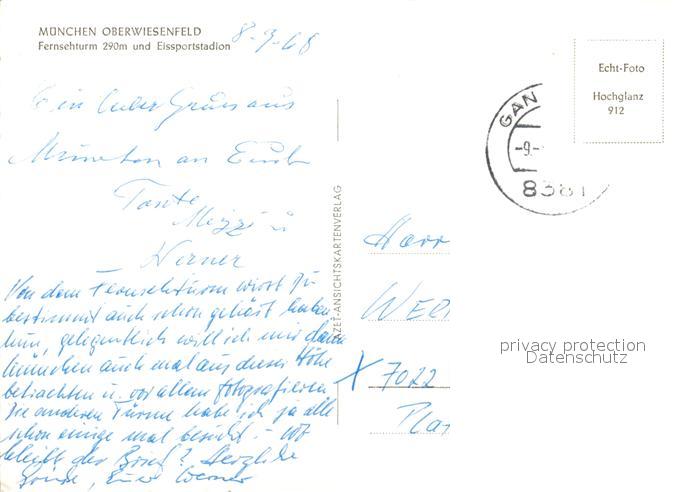 MÜNCHEN OBERWIESENFELD
Fernsehturm 290m und Eissportstadion
8-9-68
Echt-Foto
Hochglanz
912
GAN
-9.-
8381
Ein lieber Gruss aus
München an Euch
Tante
Mizzi u
Werner
AZET-ANSICHTSKARTENVERLAG
Von dem Fernsehturm wirst Du
bestimmt auch schon gehört haben
nun, gelegentlich will ich mir dann
München auch mal aus dieser Höhe
betrachten u. vor allem fotografieren
Die anderen Türme habe ich ja alle
schon einige mal besucht. - wo
bleibt der Brief? Herzliche
Grüße, Euer Werner
Herr
WER
7022
Pla
privacy protection
Datenschutz